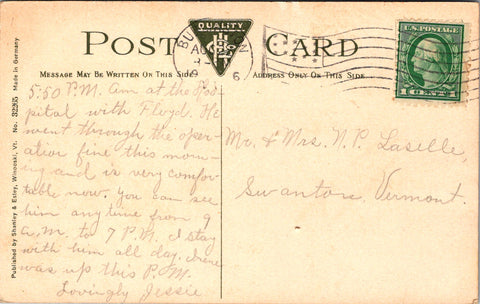 POST CARD
QUALITY
MESSAGE MAY BE WRITTEN ON THIS SIDE
ADDRESS ONLY ON THIS SIDE
U.S. POSTAGE
1 CENT 1
Published by Shanley & Estey, Winooski, Vt. No. 32305 Made in Germany
5:50 P.M. Am at the Hos-
pital with Floyd. He
went through the oper-
ation fine this morn-
ing and is very comfor-
table now. You can see
him any time from 9
a.m. to 7 P.M. I stay
with him all day. Irene
was up this P.M.
Lovingly Jessie
Mr. & Mrs. N. P. Laselle,
Swanton, Vermont.